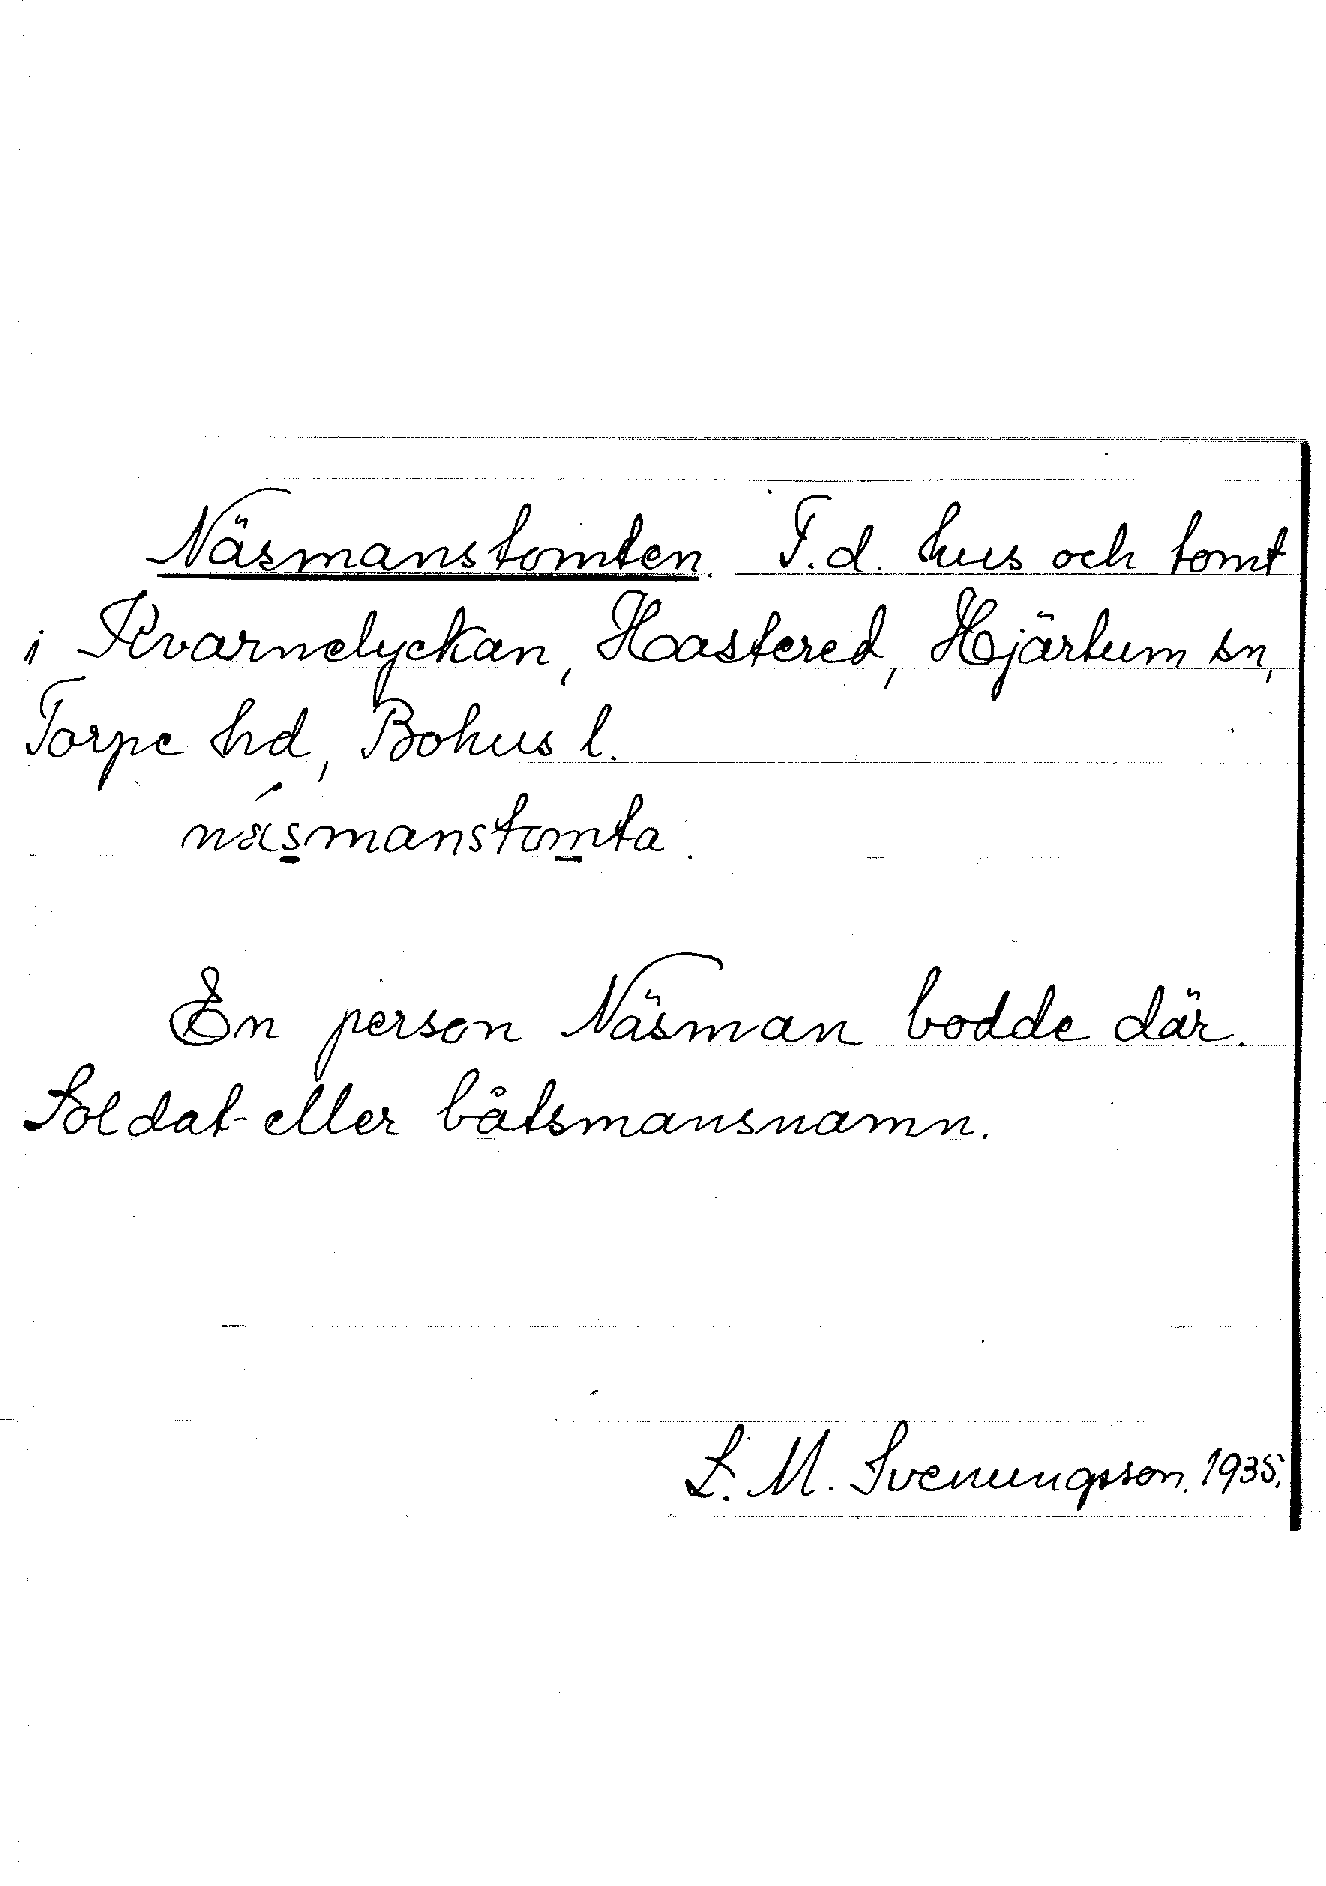 Näsmanstomten. F.d. hus och tomt
i Kvarnelyckan, Hastered, Hjärtum sn,
Torpe hd, Bohus l.
nǽsmanstomta.
En person Näsman bodde där.
Soldat- eller båtsmansnamn.
L. M. Svenungsson. 1935.